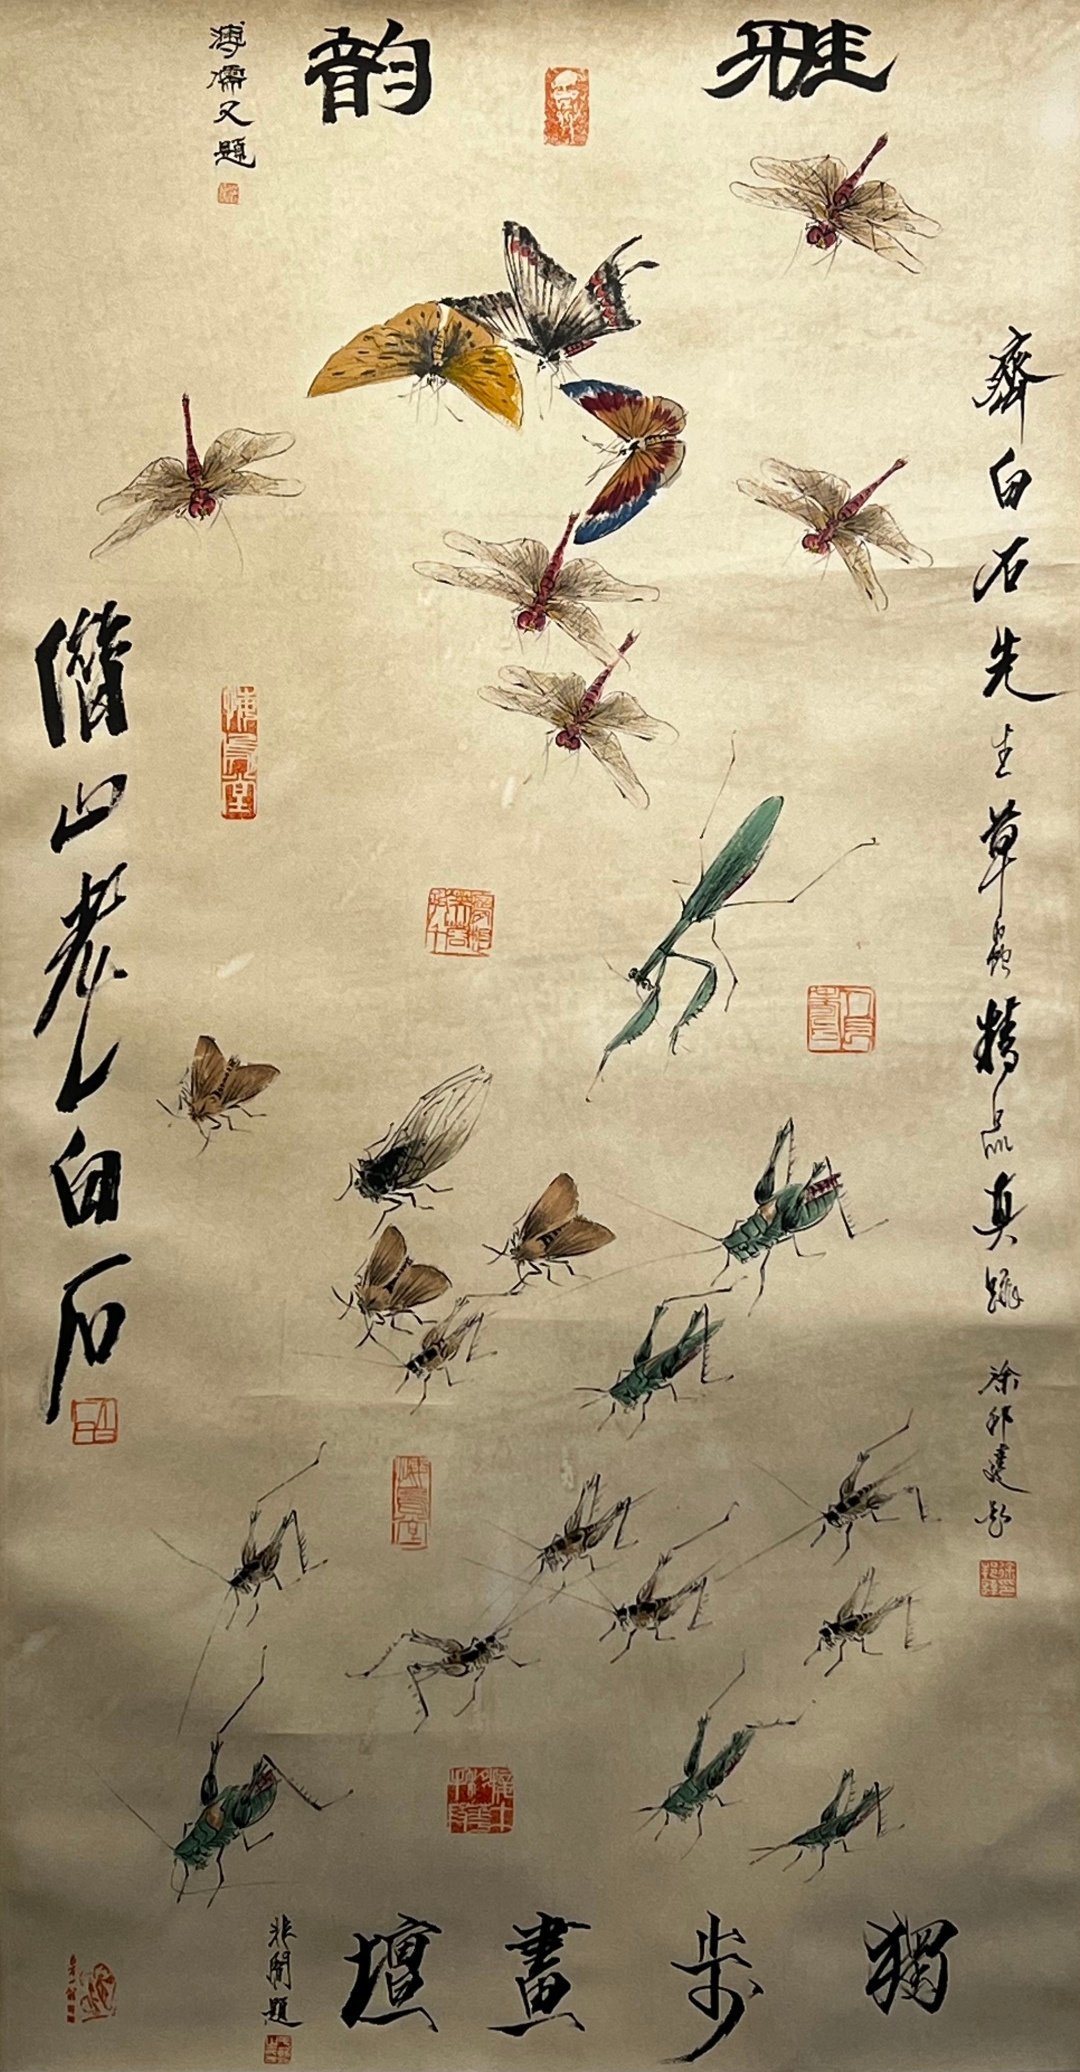 雅韵
溥儒又題
齊白石先生草蟲精品真跡
徐邦達題
借山老人白石
獨步畫壇
非闇題